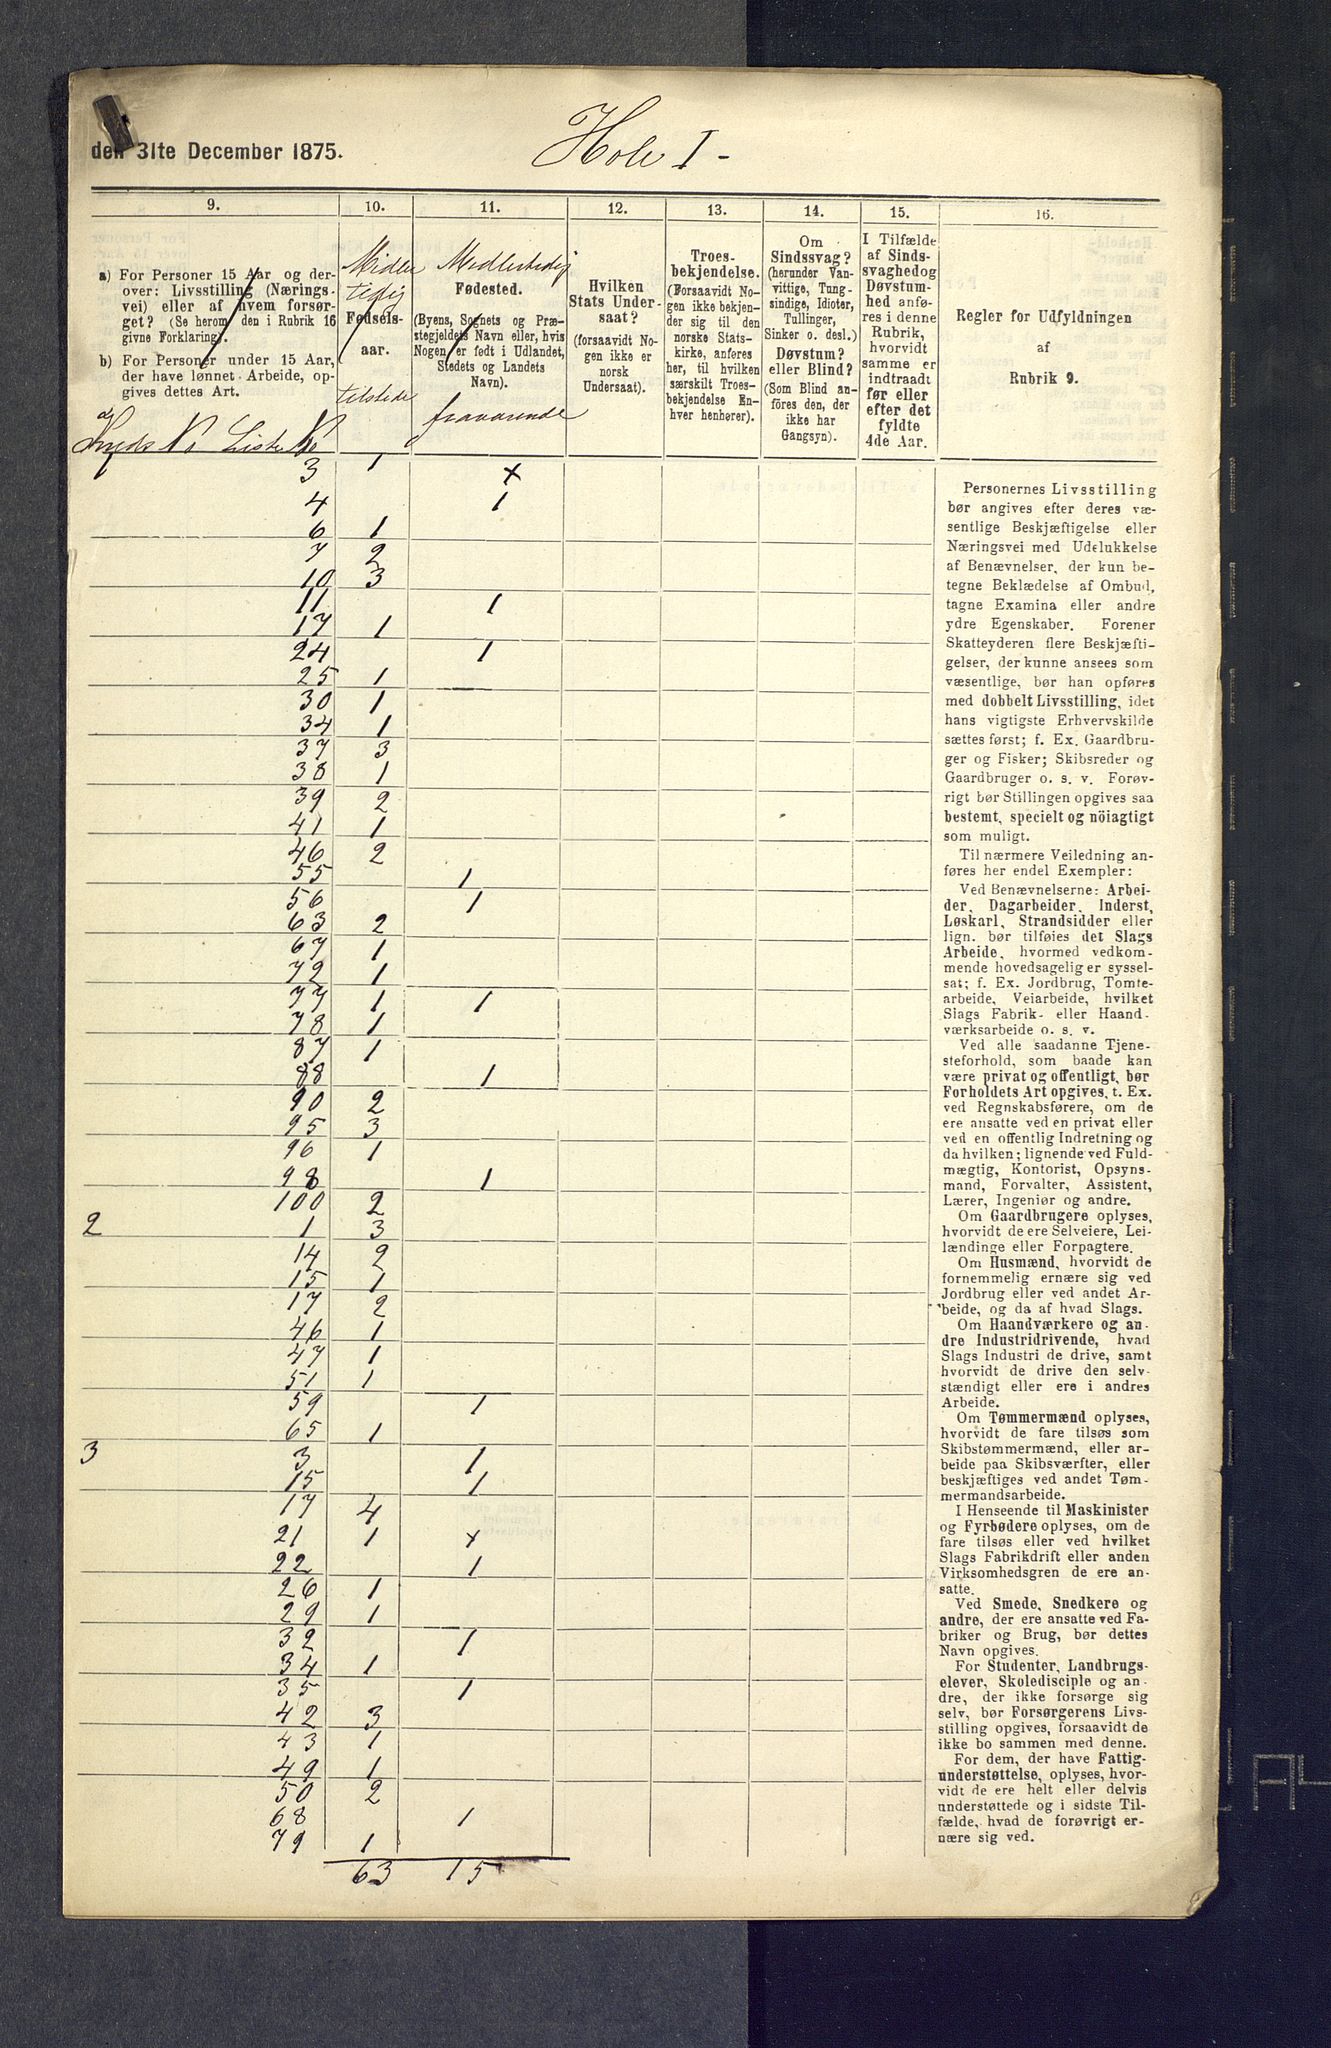 den 31te December 1875.
Hole I -
9. 10. 11. 12. 13. 14. 15. 16.
a) For Personer 15 Aar og der-
over: Livsstilling (Nærings-
vei) eller af hvem forsør-
get? (Se herom den i Rubrik 16
givne Forklaring).
b) For Personer under 15 Aar,
der have lønnet Arbeide, op-
gives dettes Art.
Kreds No Liste No
Midler
tidig
Fødsels-
aar.
tilstede
Midlertidig
Fødested.
(Byens, Sognets og Præ-
stegjeldets Navn eller, hvis
Nogen er født i Udlandet,
Stedets og Landets
Navn).
fraværende
Hvilken
Stats Under-
saat?
(forsaavidt No-
gen ikke er
norsk
Undersaat).
Troes-
bekjendelse.
(Forsaavidt No-
gen ikke bekjen-
der sig til den
norske Stats-
kirke, anføres
her, til hvilken
særskilt Troes-
bekjendelse En-
hver henhører).
Om
Sindssvag?
(herunder Van-
vittige, Tung-
sindige, Idioter,
Tullinger,
Sinker o. desl.)
Døvstum?
eller Blind?
(Som Blind an-
føres den, der
ikke har
Gangsyn).
I Tilfælde
af Sinds-
svaghed og
Døvstum-
hed anfø-
res i denne
Rubrik,
hvorvidt
samme er
indtraadt
før eller
efter det
fyldte
4de Aar.
Regler for Udfyldningen
af
Rubrik 9.
1 3 1 x
4 1
6 1
7 2
10 3
11 1
17 1
24 1
25 1
30 1
34 1
37 3
38 1
39 2
41 1
46 2
55 1
56 1
63 2
67 1
72 1
77 1 1
78 1
87 1
88 1
90 2
95 3
96 1
98 1
100 2
2 1 3
14 2
15 1
17 2
46 1
47 1
51 1
59 1
65 1
3 3 1
15 1
17 4
21 1 x
22 1
26 1
29 1
32 1
34 1
35 1
42 3
43 1
49 1
50 2
68 1
79 1
63 15
Personernes Livsstilling
bør angives efter deres væ-
sentlige Beskjæftigelse eller
Næringsvei med Udelukkelse
af Benævnelser, der kun be-
tegne Beklædelse af Ombud,
tagne Examina eller andre
ydre Egenskaber. Forener
Skatteyderen flere Beskjæfti-
gelser, der kunne ansees som
væsentlige, bør han opføres
med dobbelt Livsstilling, idet
hans vigtigste Erhvervskilde
sættes først; f. Ex. Gaardbru-
ger og Fisker; Skibsreder og
Gaardbruger o. s. v. Forøv-
rigt bør Stillingen opgives saa
bestemt, specielt og nöiagtigt
som muligt.
Til nærmere Veiledning an-
føres her endel Exempler:
Ved Benævnelserne: Arbei-
der, Dagarbeider, Inderst,
Løskarl, Strandsidder eller
lign. bør tilføies det Slags
Arbeide, hvormed vedkom-
mende hovedsagelig er syssel-
sat; f. Ex. Jordbrug, Tomte-
arbeide, Veiarbeide, hvilket
Slags Fabrik- eller Haand-
værksarbeide o. s. v.
Ved alle saadanne Tjene-
steforhold, som baade kan
være privat og offentligt, bør
Forholdets Art opgives, t. Ex.
ved Regnskabsførere, om de
ere ansatte ved en privat eller
ved en offentlig Indretning og
da hvilken; lignende ved Fuld-
mægtig, Kontorist, Opsyns-
mand, Forvalter, Assistent,
Lærer, Ingeniør og andre.
Om Gaardbrugere oplyses,
hvorvidt de ere Selveiere, Lei-
lændinge eller Forpagtere.
Om Husmænd, hvorvidt de
fornemmelig ernære sig ved
Jordbrug eller ved andet Ar-
beide, og da af hvad Slags.
Om Haandværkere og an-
dre Industridrivende, hvad
Slags Industri de drive, samt
hvorvidt de drive den selv-
stændigt eller ere i andres
Arbeide.
Om Tømmermænd oplyses,
hvorvidt de fare tilsøs som
Skibstømmermænd, eller ar-
beide paa Skibsværfter, eller
beskjæftiges ved andet Tøm-
mermandsarbeide.
I Henseende til Maskinister
og Fyrbødere oplyses, om de
fare tilsøs eller ved hvilket
Slags Fabrikdrift eller anden
Virksomhedsgren de ere an-
satte.
Ved Smede, Snedkere og
andre, der ere ansatte ved Fa-
briker og Brug, bør dettes
Navn opgives.
For Studenter, Landbrugs-
elever, Skoledisciple og an-
dre, der ikke forsørge sig
selv, bør Forsørgerens Livs-
stilling opgives, forsaavidt de
ikke bo sammen med denne.
For dem, der have Fattig-
understøttelse, oplyses, hvor-
vidt de ere helt eller delvis
understøttede og i sidste Til-
fælde, hvad de forøvrigt er-
nære sig ved.
A4